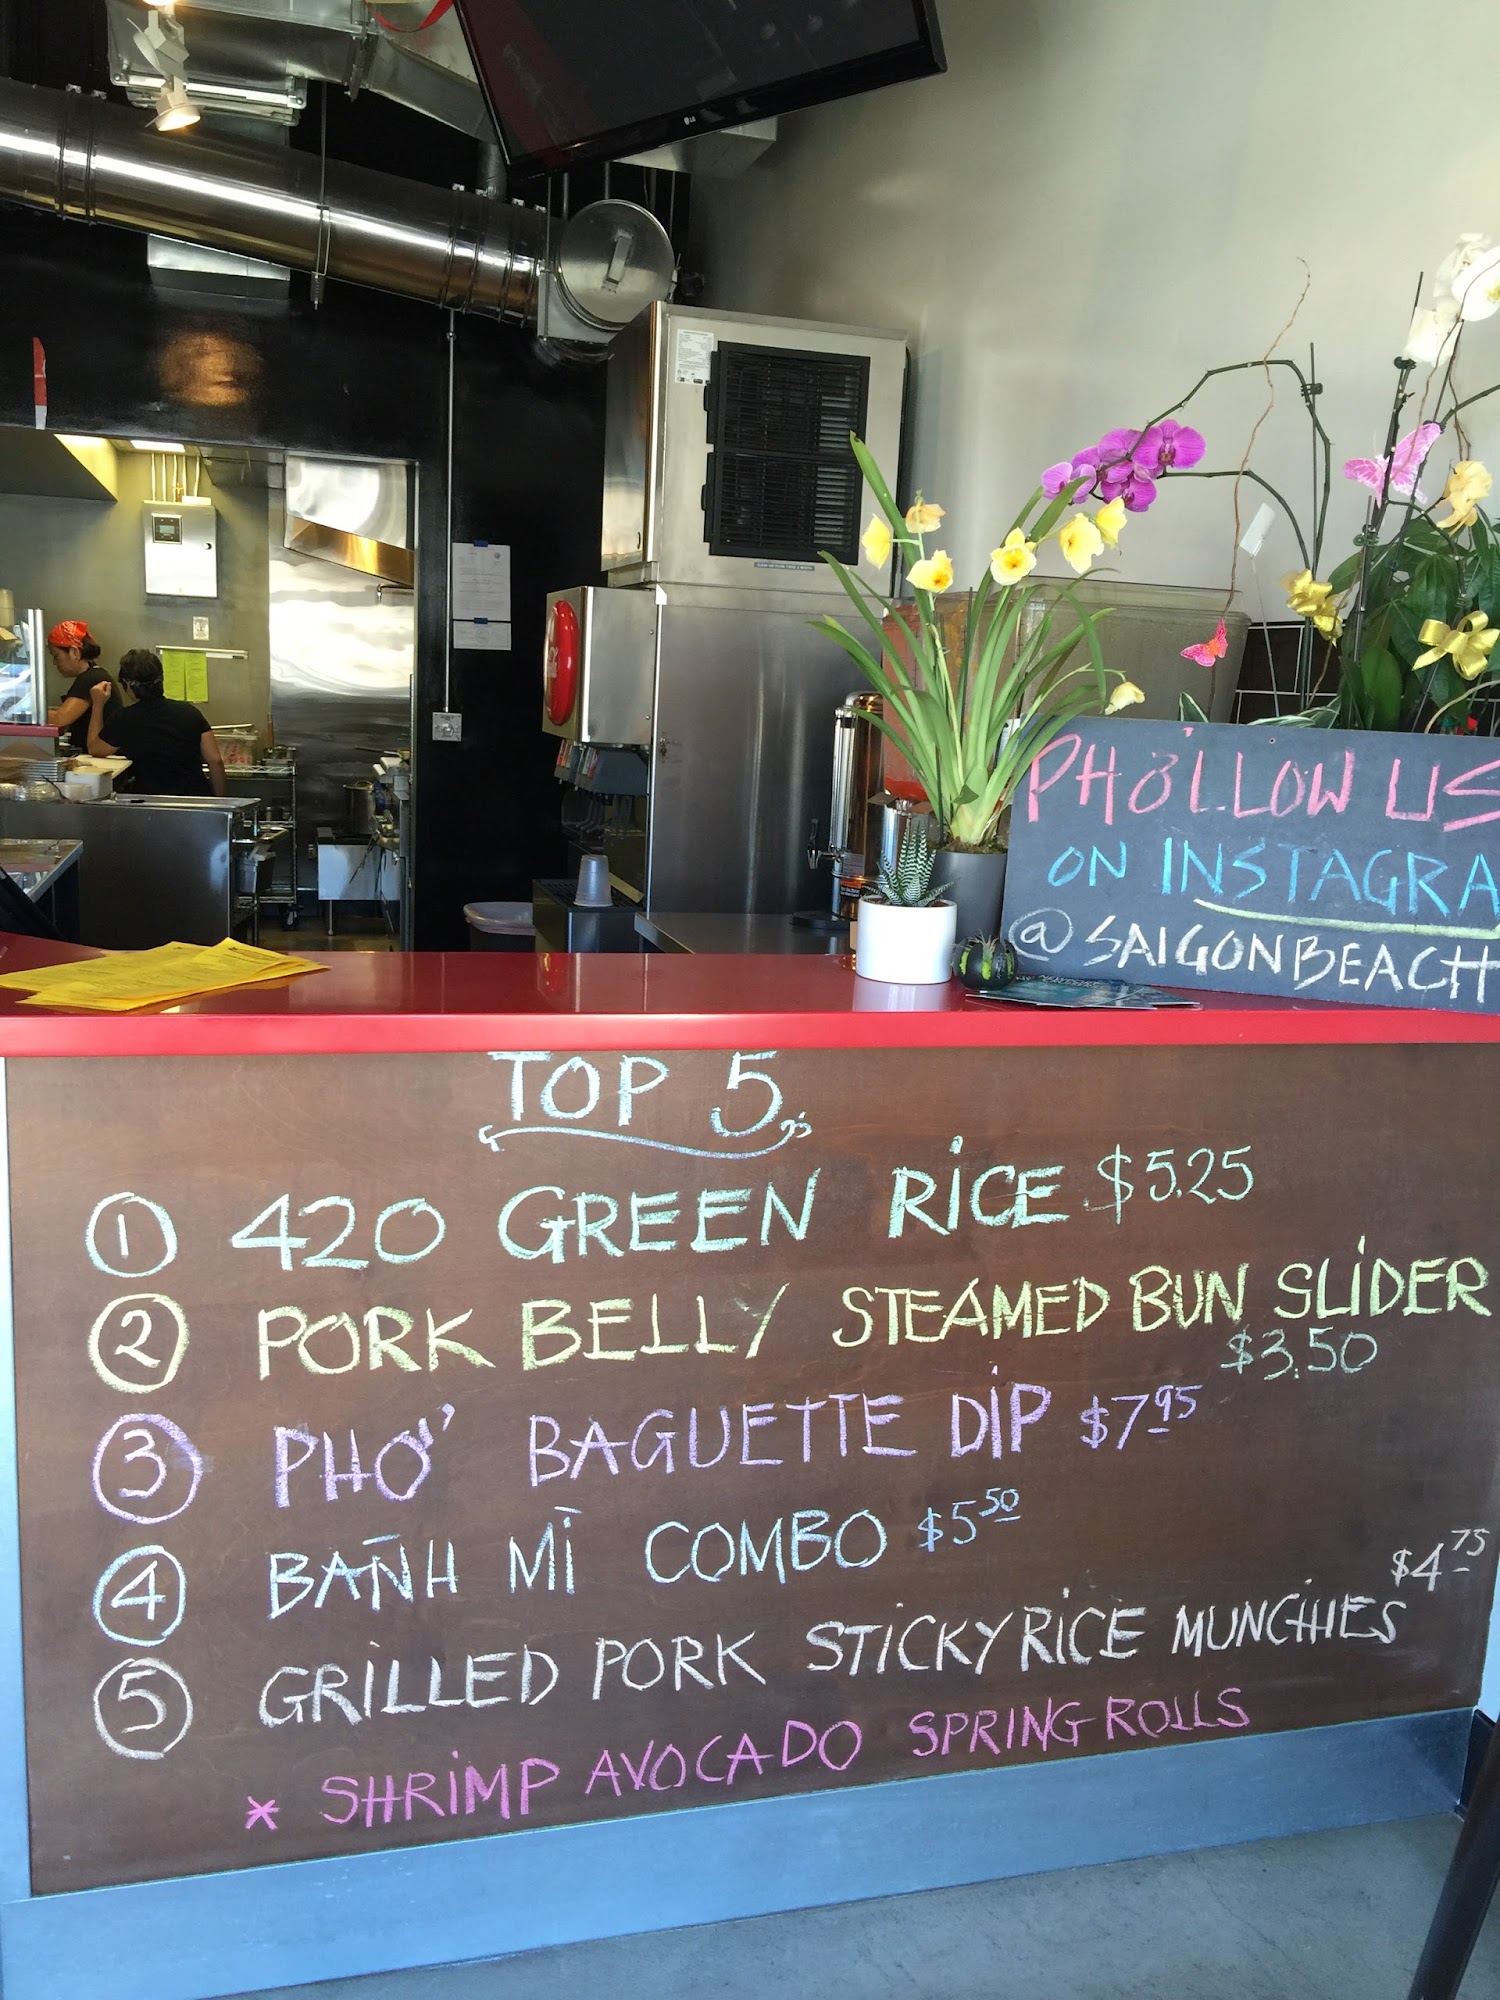 LG
PHỞLLOW US
ON INSTAGRA
@SAIGONBEACH
TOP 5
1 420 GREEN RICE $5.25
2 PORK BELLY STEAMED BUN SLIDER
$3.50
3 PHỞ BAGUETTE DIP $7.95
4 BAÑH MÌ COMBO $5.50
5 GRILLED PORK STICKY RICE MUNCHIES $4.75
* SHRIMP AVOCADO SPRING ROLLS